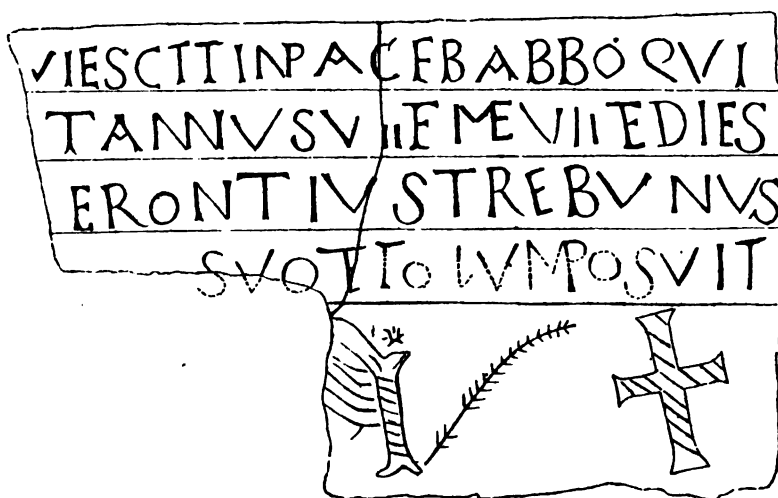 VIESCIT IN PACE BABBO QVI
T ANNVS VII E ME VII E DIES
ERONTIVS TREBVNVS
SVO TITOLVM POSVIT